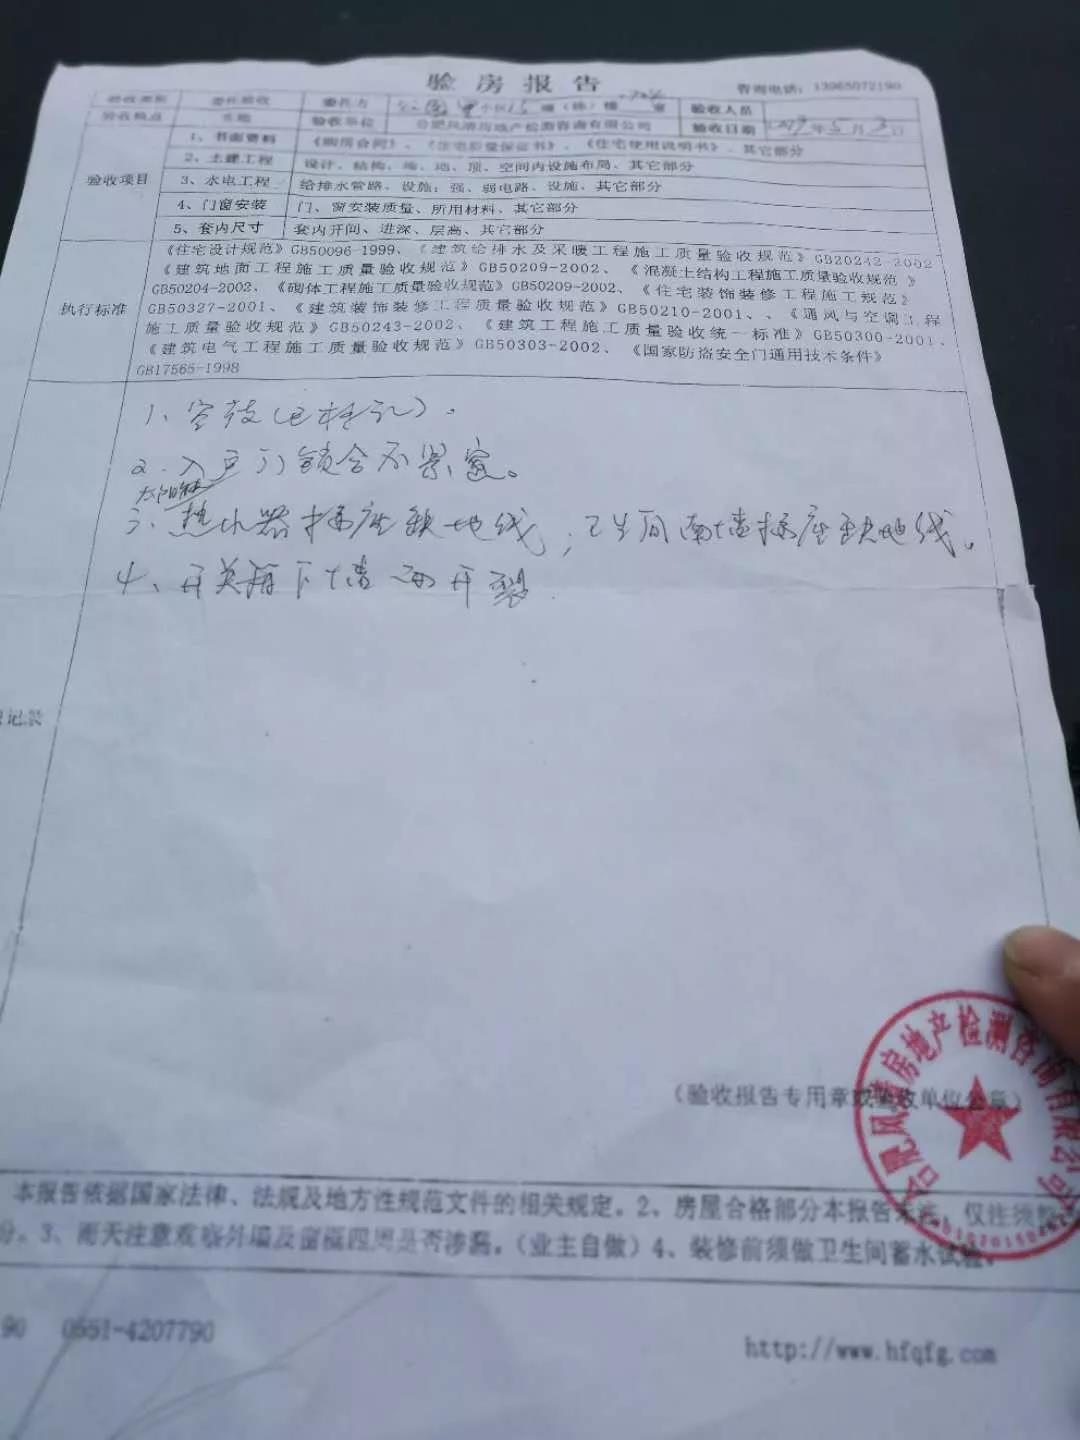 验房报告
咨询电话：13965072190
验收类别 委托验收 委托方 小区15 幢（栋）楼 室 验收人员
验收单位 合肥风清房地产检测咨询有限公司 验收日期 年5月3日
验收项目
1、书面资料 《购房合同》、《住宅质量保证书》、《住宅使用说明书》、其它部分
2、土建工程 设计、结构、墙、地、顶、空间内设施布局、其它部分
3、水电工程 给排水管路、设施；强、弱电路、设施、其它部分
4、门窗安装 门、窗安装质量、所用材料、其它部分
5、套内尺寸 套内开间、进深、层高、其它部分
执行标准
《住宅设计规范》GB50096-1999、《建筑给排水及采暖工程施工质量验收规范》GB20242-2002
《建筑地面工程施工质量验收规范》GB50209-2002、《混凝土结构工程施工质量验收规范》
GB50204-2002、《砌体工程施工质量验收规范》GB50209-2002、《住宅装饰装修工程施工规范》
GB50327-2001、《建筑装饰装修工程质量验收规范》GB50210-2001、、《通风与空调工程
施工质量验收规范》GB50243-2002、《建筑工程施工质量验收统一标准》GB50300-2001、
《建筑电气工程施工质量验收规范》GB50303-2002、《国家防盗安全门通用技术条件》
GB17565-1998
1、空鼓（已标记）。
2、入户门锁合不紧密。
太阳能
3、热水器插座缺地线；卫生间南墙插座缺地线。
4、开关箱下墙面开裂
记录
（验收报告专用章或验收单位公章）
合肥风清房地产检测咨询有限公司
本报告依据国家法律、法规及地方性规范文件的相关规定。2、房屋合格部分本报告未注，仅注须
分。3、雨天注意观察外墙及窗框四周是否渗漏。（业主自做）4、装修前须做卫生间蓄水试验。
90 0551-4207790
http://www.hfqfg.com